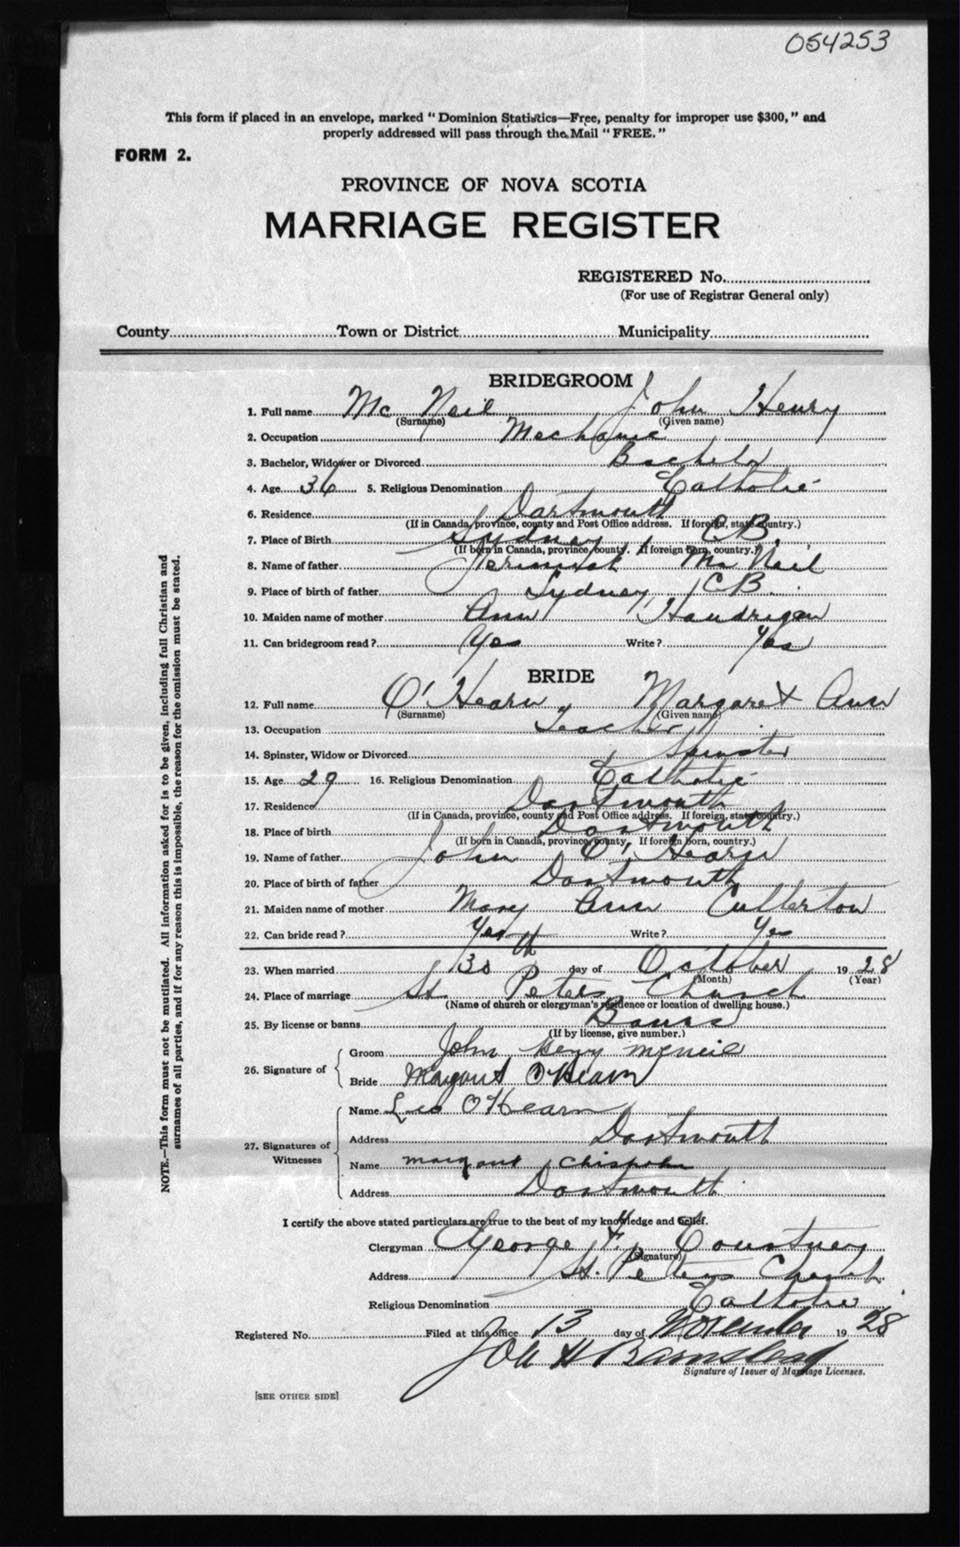 054253
This form if placed in an envelope, marked "Dominion Statistics—Free, penalty for improper use $300," and
properly addressed will pass through the Mail "FREE."
FORM 2.
PROVINCE OF NOVA SCOTIA
MARRIAGE REGISTER
REGISTERED No.
(For use of Registrar General only)
County Town or District Municipality
BRIDEGROOM
1. Full name Mc Neil John Henry
(Surname) (Given name)
2. Occupation Mechanic
3. Bachelor, Widower or Divorced Bachelor
4. Age 36 5. Religious Denomination Catholic
6. Residence Dartmouth
(If in Canada, province, county and Post Office address. If foreign, state country.)
7. Place of Birth Sydney C.B.
(If born in Canada, province, county. If foreign born, country.)
8. Name of father Mc Neil
9. Place of birth of father Sydney C B.
10. Maiden name of mother Ann Handrigan
11. Can bridegroom read? Yes Write? Yes
BRIDE
12. Full name O'Hearn Margaret Ann
(Surname) (Given name)
13. Occupation Teacher
14. Spinster, Widow or Divorced Spinster
15. Age 29 16. Religious Denomination Catholic
17. Residence Dartmouth
(If in Canada, province, county and Post Office address. If foreign, state country.)
18. Place of birth Dartmouth
(If born in Canada, province, county. If foreign born, country.)
19. Name of father John O'Hearn
20. Place of birth of father Dartmouth
21. Maiden name of mother Mary Ann Cullerton
22. Can bride read? Yes Write? Yes
23. When married 30th day of October 1928
(Month) (Year)
24. Place of marriage St. Peters Church
(Name of church or clergyman's residence or location of dwelling house.)
25. By license or banns Banns
(If by license, give number.)
26. Signature of
Groom John Henry McNeil
Bride Margaret O'Hearn
27. Signatures of Witnesses
Name Leo O'Hearn
Address Dartmouth
Name Margaret
Address Dartmouth
I certify the above stated particulars are true to the best of my knowledge and belief.
Clergyman George Courtney
(Signature)
Address St. Peters Church
Religious Denomination Catholic
Registered No. Filed at this office 13 day of November 1928
Signature of Issuer of Marriage Licenses.
[SEE OTHER SIDE]
NOTE.—This form must not be mutilated. All information asked for is to be given, including full Christian and
surnames of all parties, and if for any reason this is impossible, the reason for the omission must be stated.